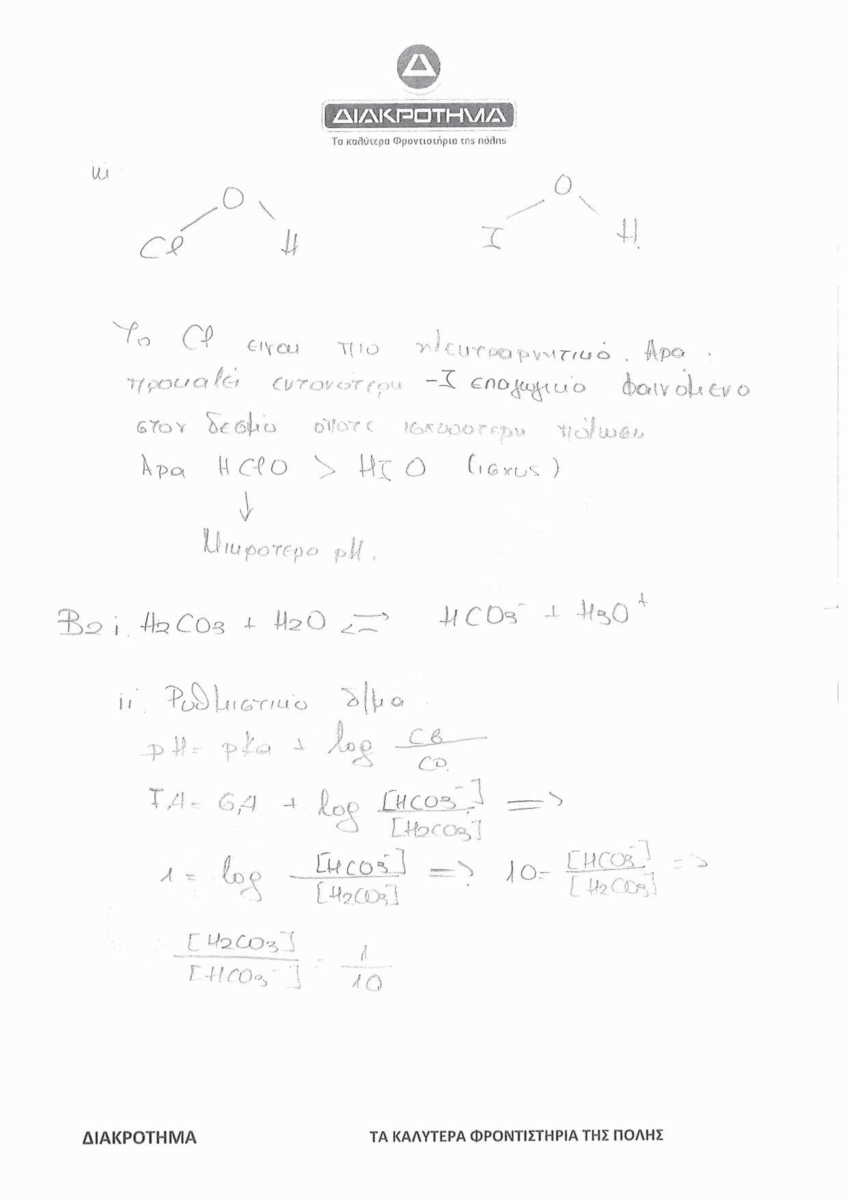 Δ
ΔΙΑΚΡΟΤΗΜΑ
Τα καλύτερα Φροντιστήρια της πόλης
iii
O O
Cl H I H
Το Cl ειναι πιο ηλεκτραρνητικό. Αρα
προκαλεί εντονότερη -I επαγωγικό φαινόμενο
στον δεσμό οποτε ισχυροτερη πόλωση
Αρα HClO > HIO (ισχυς)
↓
Μικροτερο pH.
B2 i. H2CO3 + H2O ⇌ HCO3⁻ + H3O⁺
ii. Ρυθμιστικο δ/μα
pH = pKa + log CB/CO
7,4 = 6,4 + log [HCO3⁻]/[H2CO3] =>
1 = log [HCO3⁻]/[H2CO3] => 10 = [HCO3⁻]/[H2CO3] =>
[H2CO3]/[HCO3⁻] = 1/10
ΔΙΑΚΡΟΤΗΜΑ ΤΑ ΚΑΛΥΤΕΡΑ ΦΡΟΝΤΙΣΤΗΡΙΑ ΤΗΣ ΠΟΛΗΣ